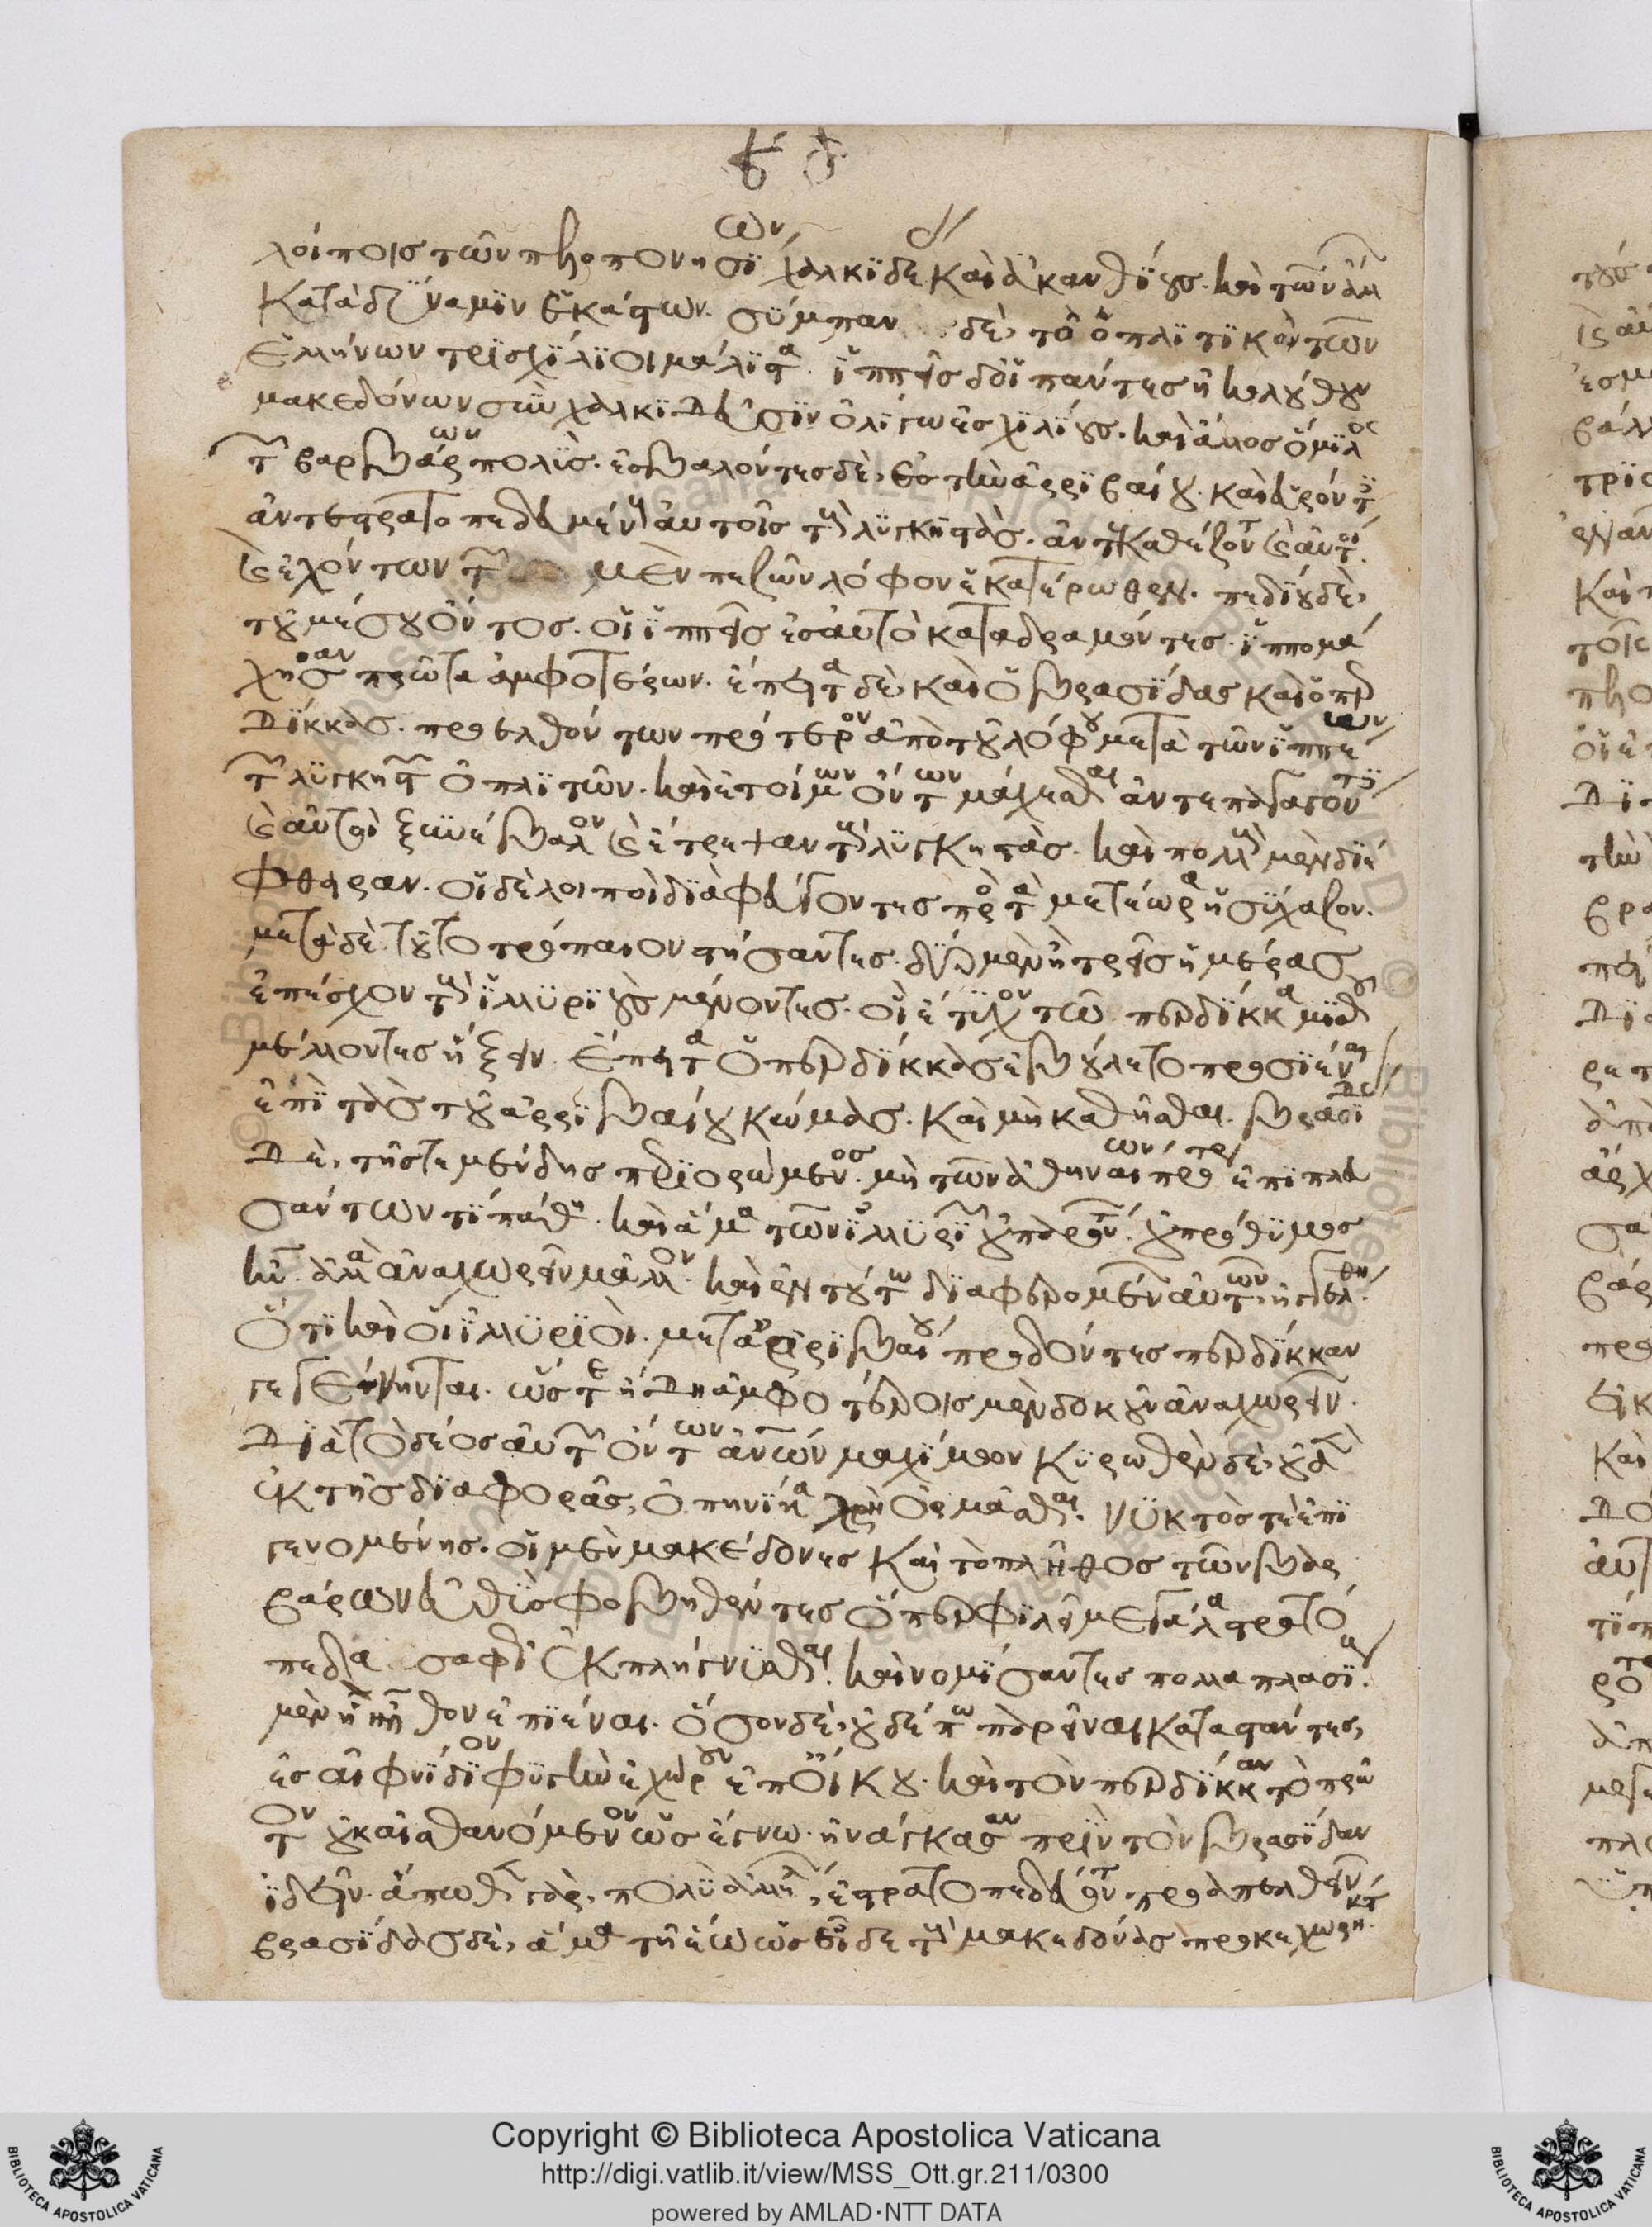 λοίποις τῶν πελοπονησίων χαλκϊδε καὶ ἀκανθΐους. καὶ τῶν ἄλλ
κατὰ δύναμϊν ἑκάστων. σύμπαν δὲ, τὸ ὁπλϊτϊκὸν τῶν
ἑλλήνων τρϊσχΐλϊοι μάλϊστα. ἱππεῖς δ' οἱ πάντες ἠκολούθουν
μακεδόνων σὺν χαλκϊδεῦσϊν ὀλίγω ἐς χϊλίους. καὶ ἄλλος ὅμϊλος
τῶν βαρβάρων πολϊς. ἐσβαλόντες δὲ, ἐς τὴν ἀρρϊβαίου. καὶ εὑρόντες
ἀντεστρατοπεδευμένους αὐτοῖς τοὺς λϋγκηστὰς. ἀντεκαθέζοντο καὶ αὐτοί.
καὶ ἐχόντων τῶν μὲν πεζῶν λόφον ἑκατέρωθεν. πεδίου δὲ,
τοῦ μέσου ὄντος. οἱ ἱππεῖς ἐς αὐτὸ καταδραμόντες. ἱππομά
χησαν πρῶτα ἀμφοτέρων. ἔπειτα δὲ, καὶ ὁ βρασίδας καὶ ὁ περ
δΐκκας. προελθόντων πρότερον ἀπὸ τοῦ λόφου μετὰ τῶν ἱππέων
τῶν λϋγκηστῶν ὁπλϊτῶν. καὶ ἑτοίμων ὄντων μάχεσθαι ἀντεπαγαγόντες
καὶ αὐτοὶ ξυνέβαλον καὶ ἔτρεψαν τοὺς λϋγκηστὰς. καὶ πολλοὺς μὲν δϊέ
φθειραν. οἱ δὲ λοιποὶ δϊαφεύγοντες πρὸς τὰ μετέωρα ἡσύχαζον.
μετὰ δὲ τοῦτο τρόπαιον στήσαντες. δύο μὲν ἢ τρεῖς ἡμέρας
ἐπέσχον τοὺς ἰλλϋρϊοὺς μένοντες. οἳ ἔτϋχον τῶ περδΐκκα μϊσθοῦ
μέλλοντες ἥξειν. ἔπειτα ὁ περδΐκκας ἐβούλετο προσϊέναι
ἐπὶ τὰς τοῦ ἀρρϊβαίου κώμας. καὶ μὴ καθῆσθαι. βρασΐδας
δὲ, τῆς τε μένδης περϊορώμενος. μὴ τῶν ἀθηναίων πρότερον ἐπϊπλευ
σάντων τὶ πάθη. καὶ ἅμα τῶν ἰλλϋρϊῶν οὐ παρόντων. οὐ πρόθϋμος
ἦν. ἀλλὰ ἀναχωρεῖν μᾶλλον. καὶ ἐν τούτω δϊαφερομένων αὐτῶν, ἠγγέλθη
ὅτϊ καὶ οἱ ἰλλϋρϊοὶ. μετὰ ἀρρϊβαίου προδόντες περδΐκκαν
γεγένηνται. ὥστε ἤδη ἀμφοτέροις μὲν δοκοῦν ἀναχωρεῖν.
δϊὰ τὸ δέος αὐτῶν ὄντων ἀνθρώπων μαχΐμων κϋρωθὲν δὲ, οὐδὲν
ἐκ τῆς δϊαφορᾶς, ὁπηνίκα χρὴ ὁρμᾶσθαι. νϋκτὸς τε ἐπϊ
γενομένης. οἱ μὲν μακεδόνες καὶ τὸ πλῆθος τῶν βαρ
βάρων εὐθὺς φοβηθέντες ὅπερ φϊλεῖ μεγάλα στρατό
πεδα σαφῶς ἐκπλήγνϋσθαι. καὶ νομΐσαντες πολλαπλασΐους
μὲν ἢ ἦλθον ἐπϊέναι. ὅσον δὲ, οὐδέπω παρεῖναι καταστάντες,
ἐς αἰφνΐδϊον φϋγὴν ἐχώρουν ἐπ' οἴκου. καὶ τὸν περδΐκκαν τὸ πρῶ
τον οὐκ αἰσθανόμενον ὡς ἔγνω. ἠνάγκασαν πρὶν τὸν βρασΐδαν
ἰδεῖν. ἄπωθεν γὰρ, πολὺ ἀλλήλων, ἐστρατοπεδεύοντο. προαπελθεῖν
βρασΐδας δὲ, ἅμα τῆ ἕω ὡς εἶδε τοὺς μακεδόνας προκεχωρηκότας